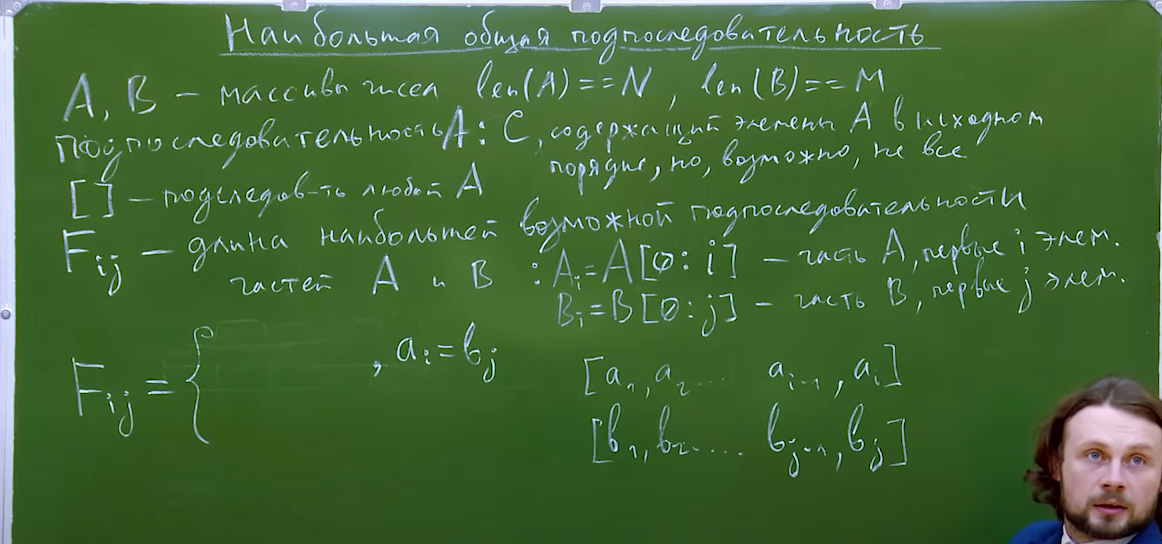 Наибольшая общая подпоследовательность
A, B – массивы чисел len(A)==N, len(B)==M
подпоследовательность A: C, содержащий элемены A в исходном
порядке, но, возможно, не все
[] – подследов-ть любой A
Fij – длина наибольшей возможной подпоследовательности
частей A и B : Ai=A[0:i] – часть A, первые i элем.
Bi=B[0:j] – часть B, первые j элем.
Fij={ , ai=bj
[a1, a2... ai-1, ai]
[b1, b2.... bj-1, bj]